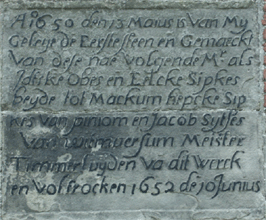 A° 1650 den 15 Maius is Vem My
Geleyt de Eerste steen en Gemaeckt
Van dese nae volgende Mrs als
Jatske Obes en Eelcke Sipkes
beyde tot Mackum hepcke Sip
kes van piniom en Jacob Sytses
Van wurmversum Meister
Timmerluyden va dit Werck
en Voltrocken 1652 de 30 Junius